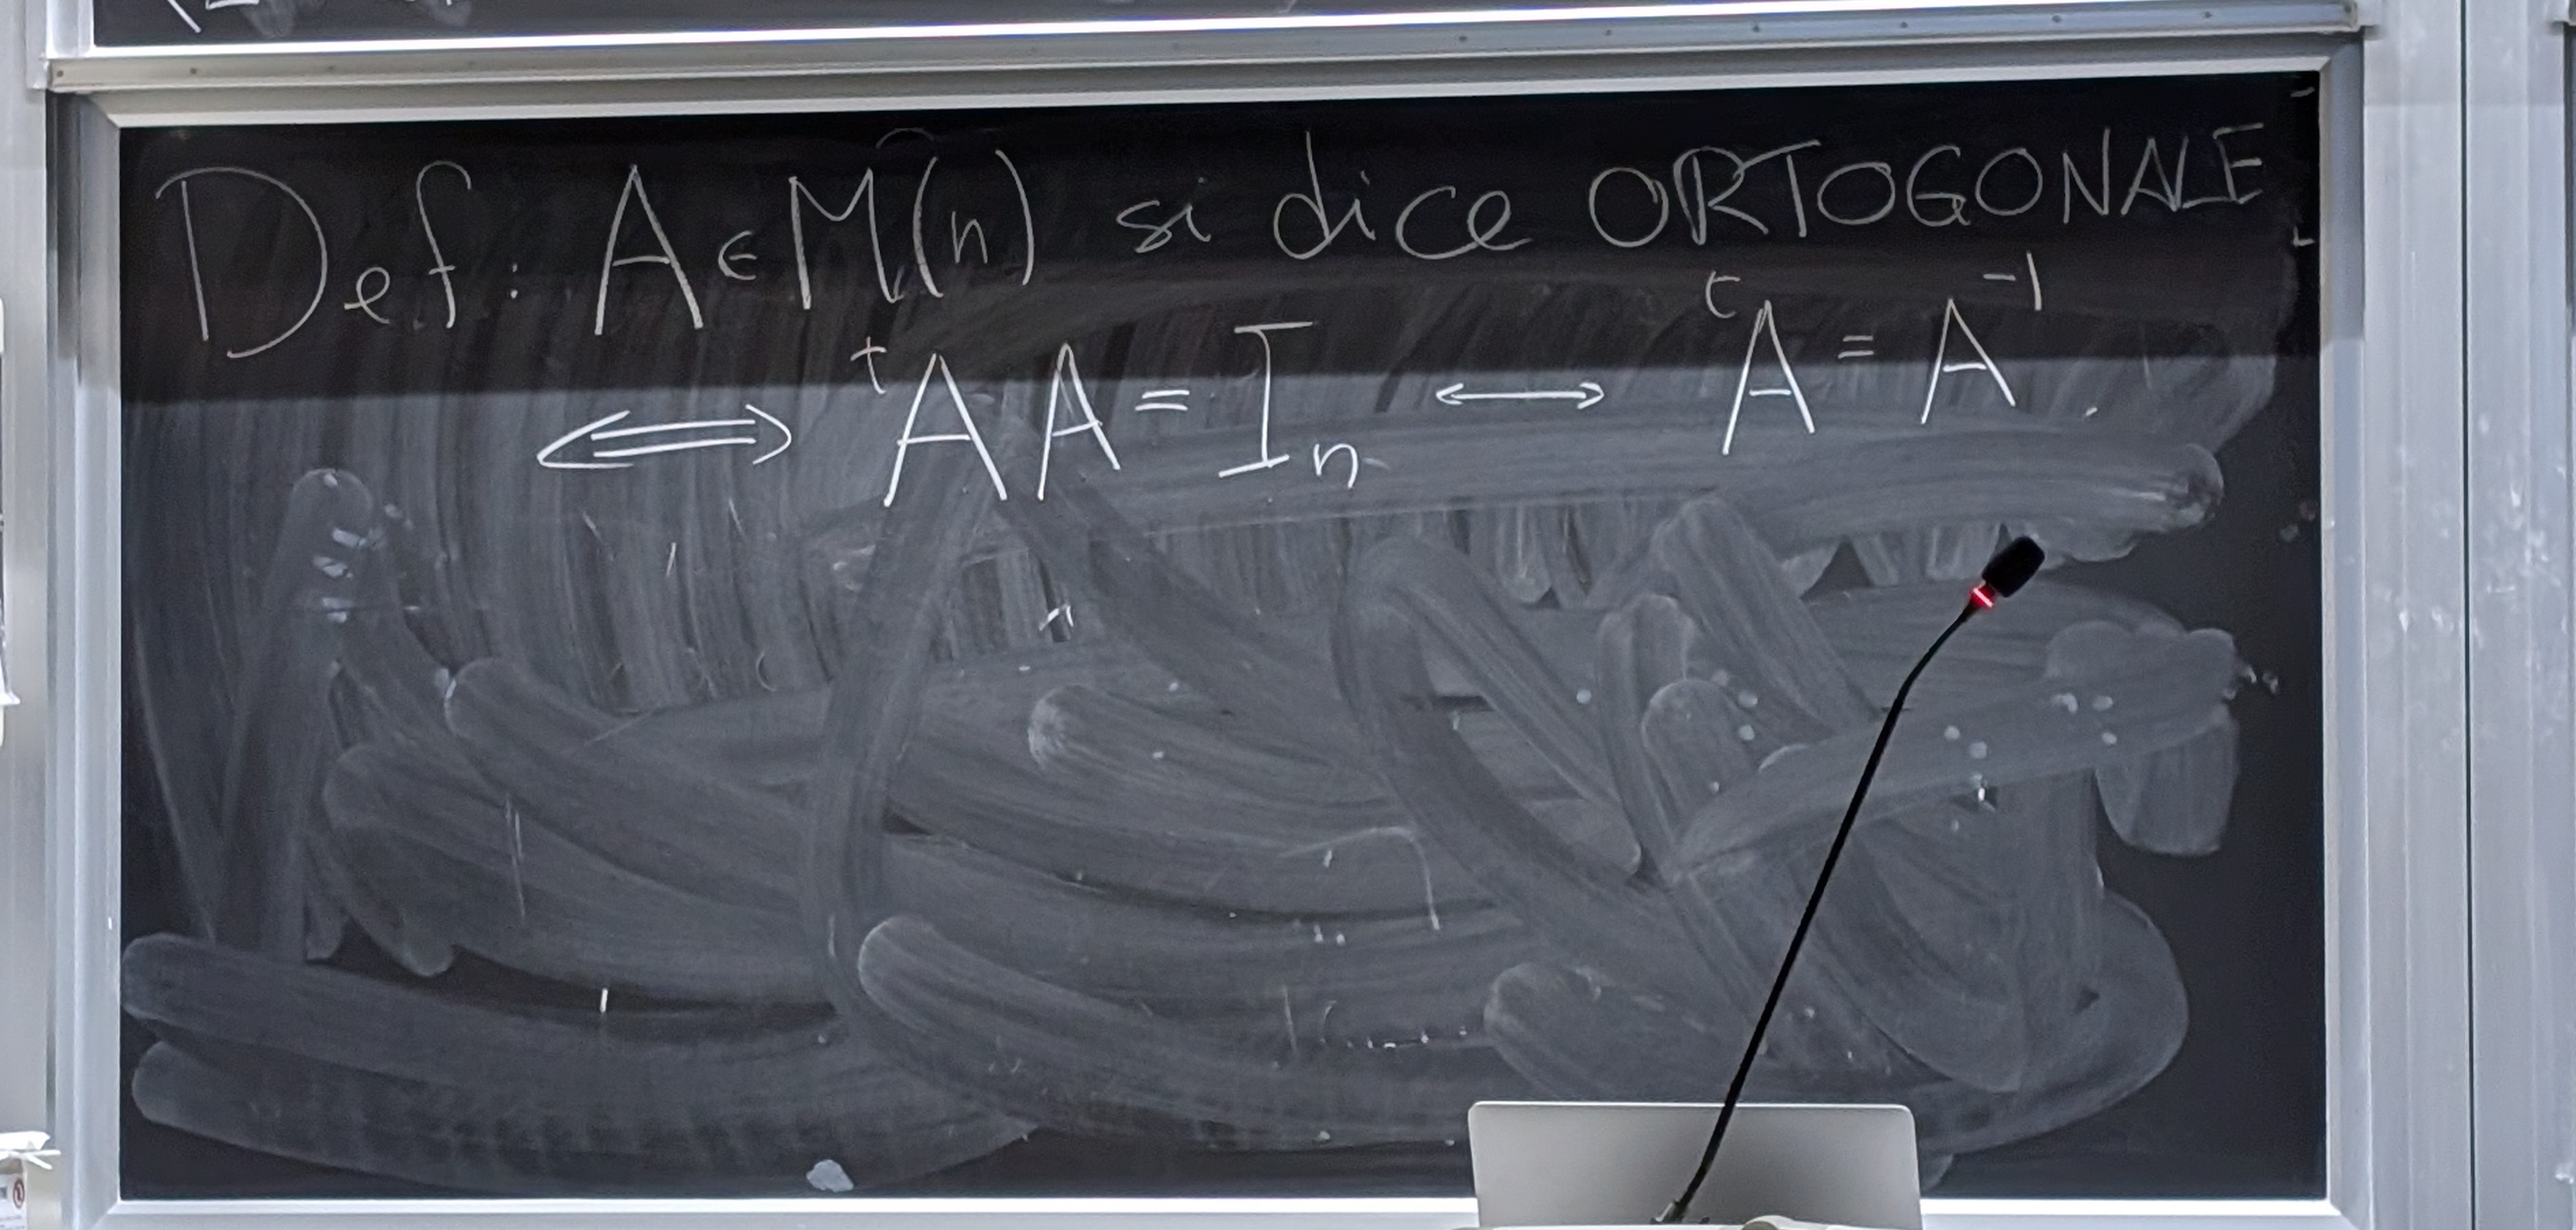 Def: A ∈ M(n) si dice ORTOGONALE
⟺ ᵗA A = Iₙ ⟷ ᵗA = A⁻¹.